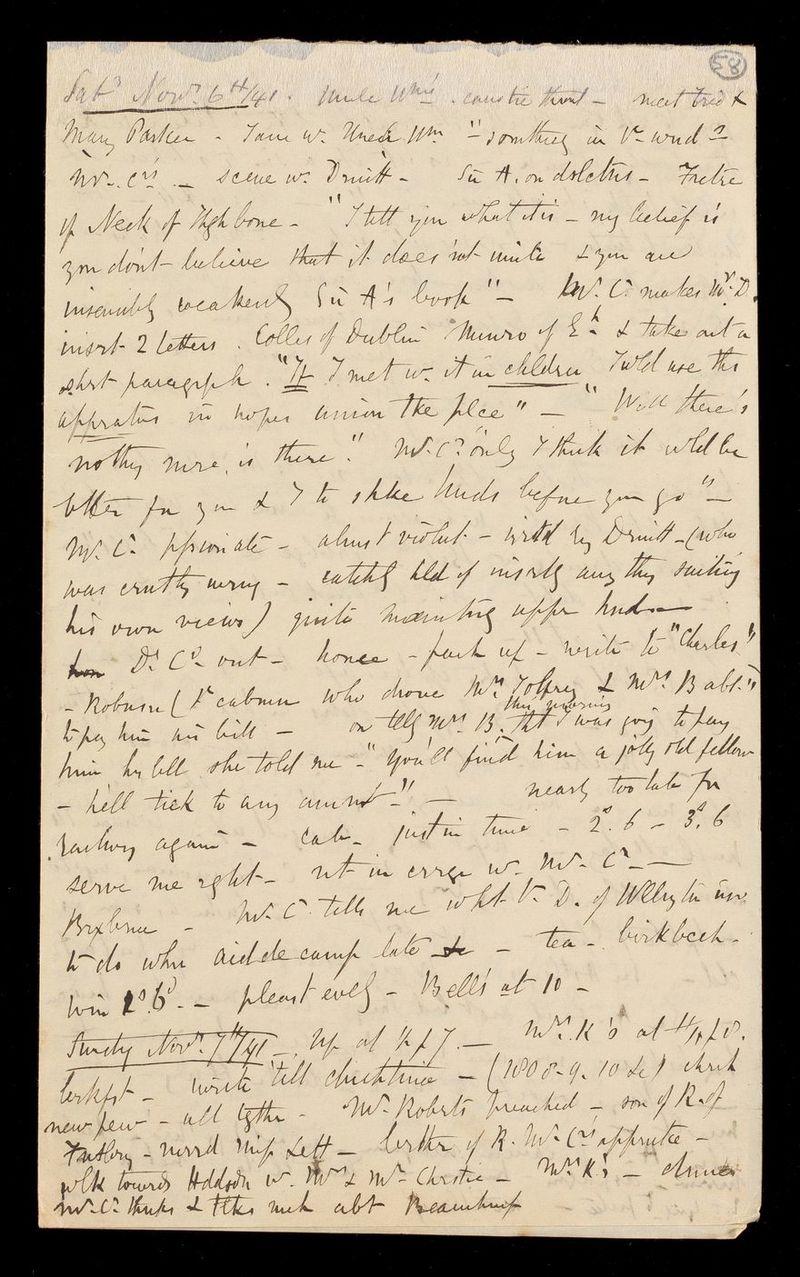 83
Saty Novr. 6th/41. Uncle Wm's. caustic throat - meet Fred &
Mary Parker - Tarn w. Uncle Wm "- somthing in
Mr. C's - scene w. Druitt - Sir A. on dslctns - Frctre
of Neck of Thgh bone - "I tell you what it is - my belief is
you don't believe that it does not unite & you are
insensibly weakeng Sir A's book" - Mr. C. makes Mr. D.
insrt 2 letters. Colles of Dublin Munro of & take out a
shrt paragrph. "If I met w. it in children I wld use the
appratus in hopes union tke plce" - "Well there's
nothg more, is there." Mr. C. "only I think it wld be
bttr for you & I to shke hnds before you go" -
Mr. C. pssionate - almst violnt - by Druitt - (who
was wrng - catchg hld of insrtg any thg suiting
his own views) quite maintng uppr hnd -
Dr. C's out - home - pack up - write to "Charles"
- Robusn ( cabman who drove Mrs & Mrs. B abt.)
to pay him his bill - on tellg Mrs. B. this morning tht I was going to pay
him his bill she told me - "you'll find him a jolly old fellow
- he'll tick to any amnt." - nearly too late for
railway again - cab - just in time - 2s. 6 - 3s. 6
serve me rght - nt in crrge w. Mr. C. -
Brxbrne - Mr. C. tells me wht D. of Wllngtn used
to do when aid de camp late - tea - birkbeck -
win 1s. 6d. - pleasnt eveng - Bell's at 10 -
Sundy Novr. 7th/41 - Up at 7. - Mrs. K's at
brkfst - write till chchtime - (1808-9-10 &c) chrch
new pew - all tgthr - Mr. Roberts preached - son of R. of
- Miss - brthr of R. Mr. C's apprntce -
wlk towards Hddsdn w. Mrs & Mr. Christie - Mrs. K's - dinner
Mr. C. thnks & tlks mch abt Beauchmp